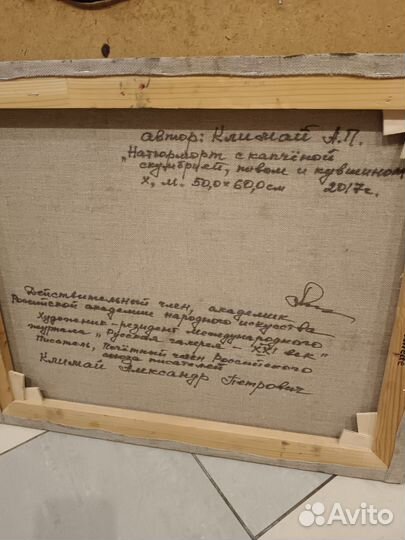 автор: Климай А.П.
„Натюрморт с капчёной
скумбрией, пивом и кувшином
х, м. 50,0×60,0см 2017г.
Действительный член, академик
Российской академии народного искусства
Художник-резидент международного
журнала „Русская галерея - XXI век"
писатель, Почётный член Российского
союза писателей
Климай Александр Петрович
Avito